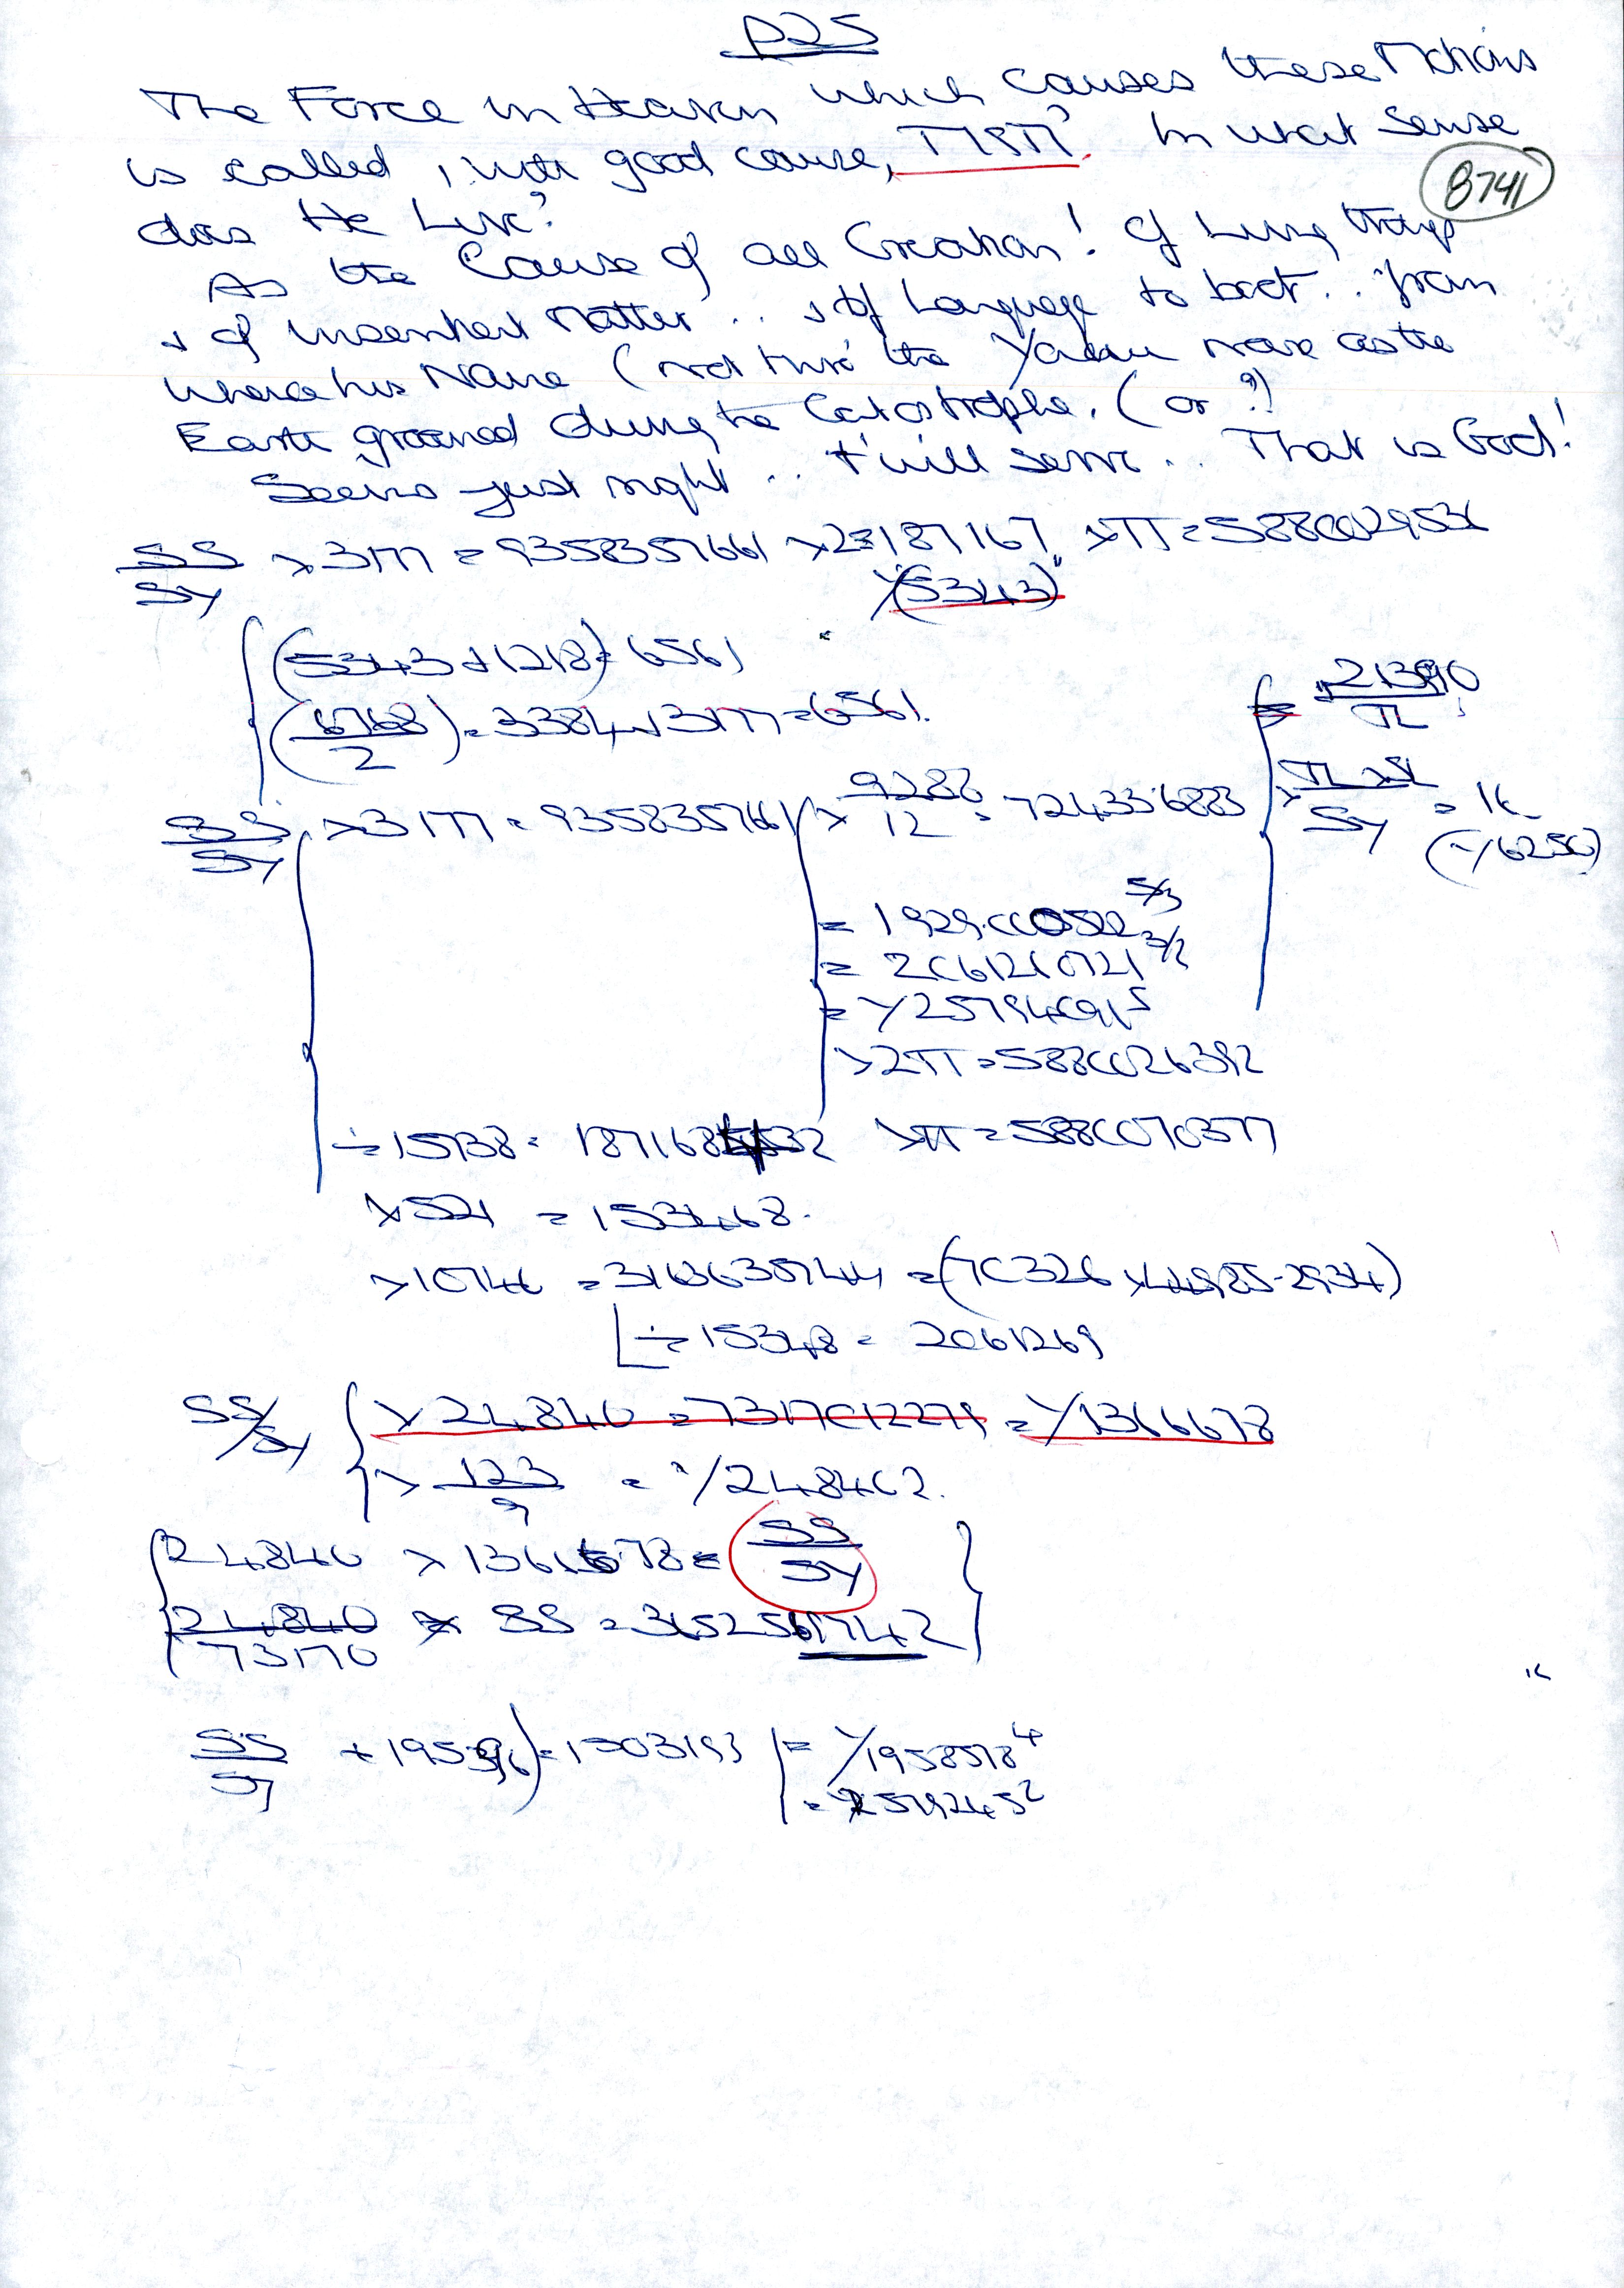 P25
The Force in Heaven which causes these Motions
is called, with good cause, In what sense
8741
does He Live?
As the Cause of all Creation! Of Living things
& of insentient matter .. & of Language to boot .. from
whence his Name (not thro' the Yahu noise as the
Earth groaned during the Catastrophe. (or ?)
Seems just right .. t'will serve .. That is God!
SS/SY × 3177 = 9358357661 × 2 = 187167 × π = 588002953
/(5343)"
(5343 + 1218) = 6561
(6768/2) = 3384 + 3177 = 6561.
= "21390/π
SS/SY × 3177 = 9358357661 × 9288/12 = 7243356883 × = 1
(-/6250)
= 1929.000522 5/3
= 2061210721 3/2
= /257940915
× 2π = 5880026392
÷ 15738 = 187168 32 × π = 5880070377
× 521 = 153468.
× 10746 = 3163635744 = (70326 × 44985-2934)
÷ 15348 = 2061269
SS/SY × 24840 = 7317012279 = /1366678
× 123/9 = "/248402.
24840 × 1366678 = SS/SY
24840/73170 × SS = 3652561742
SS/SY + 195396) = 1503193 = /1958578 4
= 2579245 2